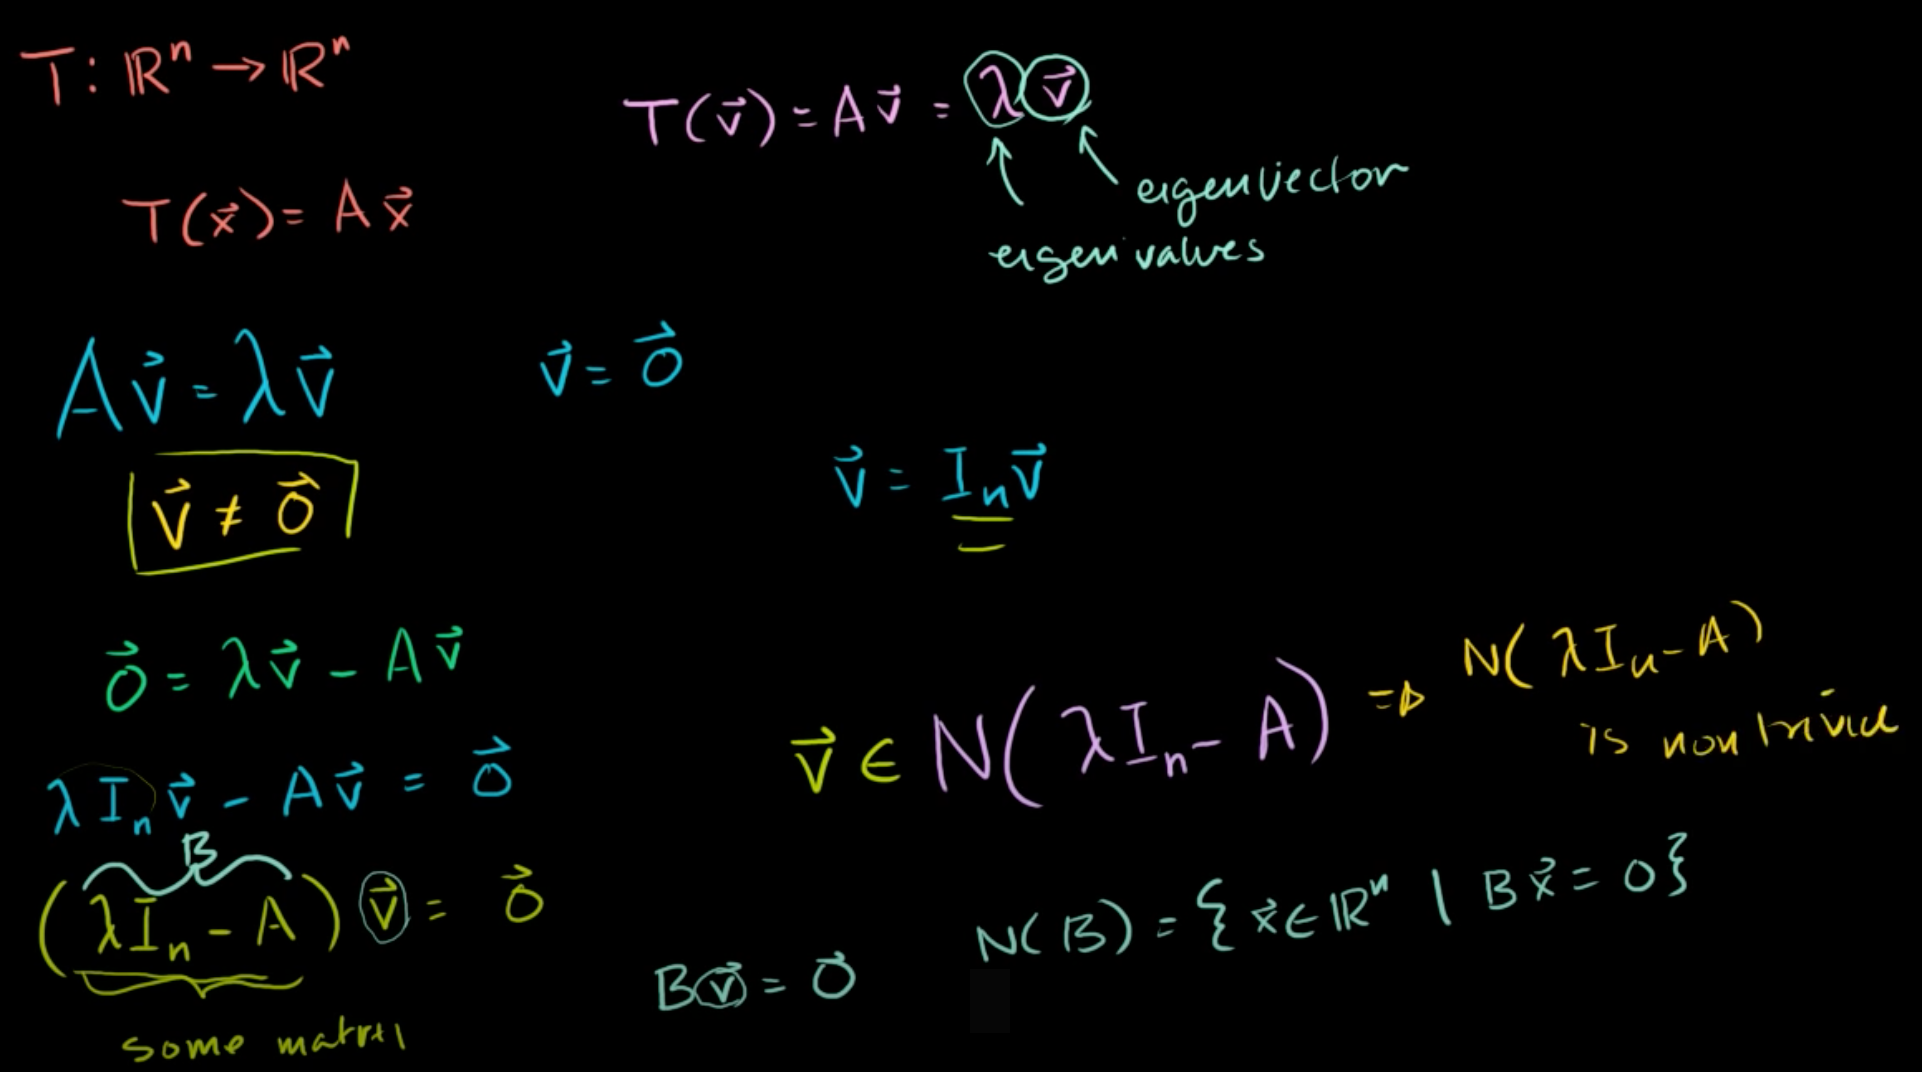 T: ℝⁿ → ℝⁿ
T(v⃗) = A v⃗ = λ v⃗
eigenvector
eigenvalues
T(x⃗) = A x⃗
A v⃗ = λ v⃗
v⃗ = 0⃗
v⃗ ≠ 0⃗
v⃗ = Iₙ v⃗
0⃗ = λ v⃗ - A v⃗
v⃗ ∈ N(λIₙ - A) ⇒ N(λIₙ - A)
is nontrivial
λIₙ v⃗ - A v⃗ = 0⃗
B
(λIₙ - A) v⃗ = 0⃗
some matrix
B v⃗ = 0⃗
N(B) = { x⃗ ∈ ℝⁿ | B x⃗ = 0 }